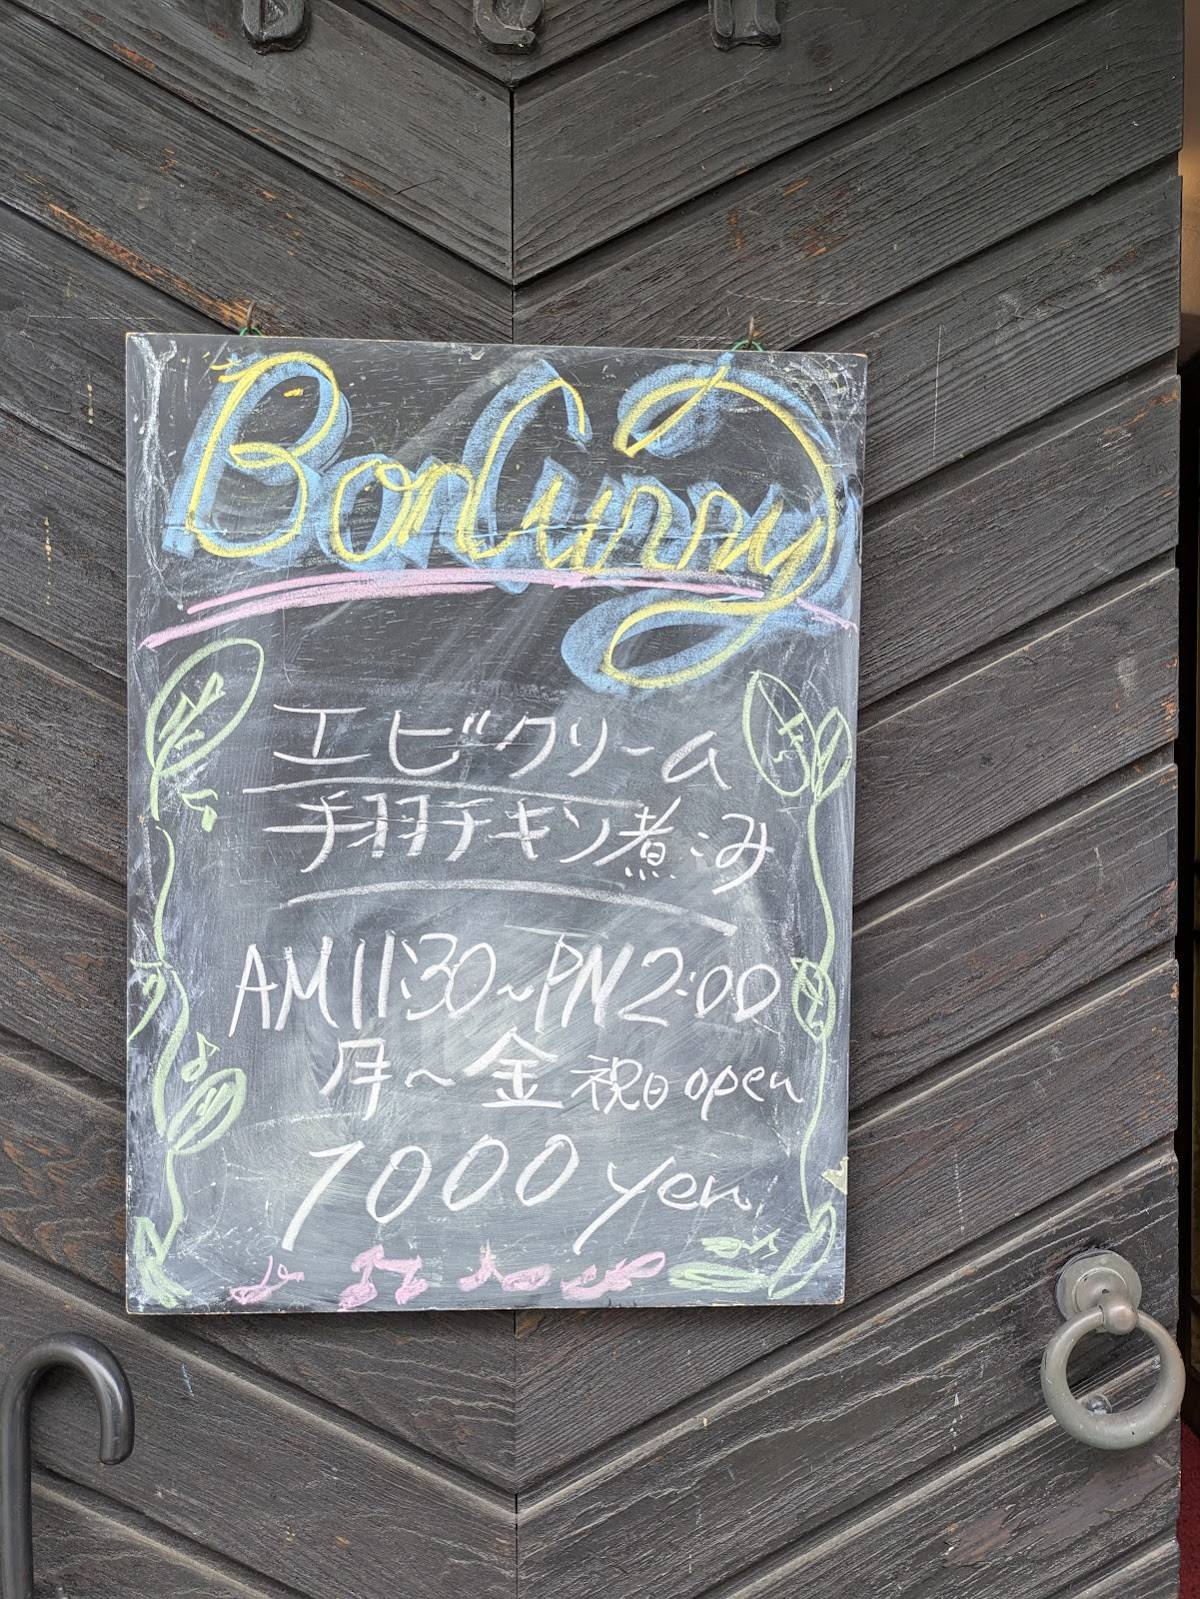 Bon Curry
エビクリーム
手羽チキン煮込み
AM11:30～PM2:00
月～金 祝日open
1000 yen